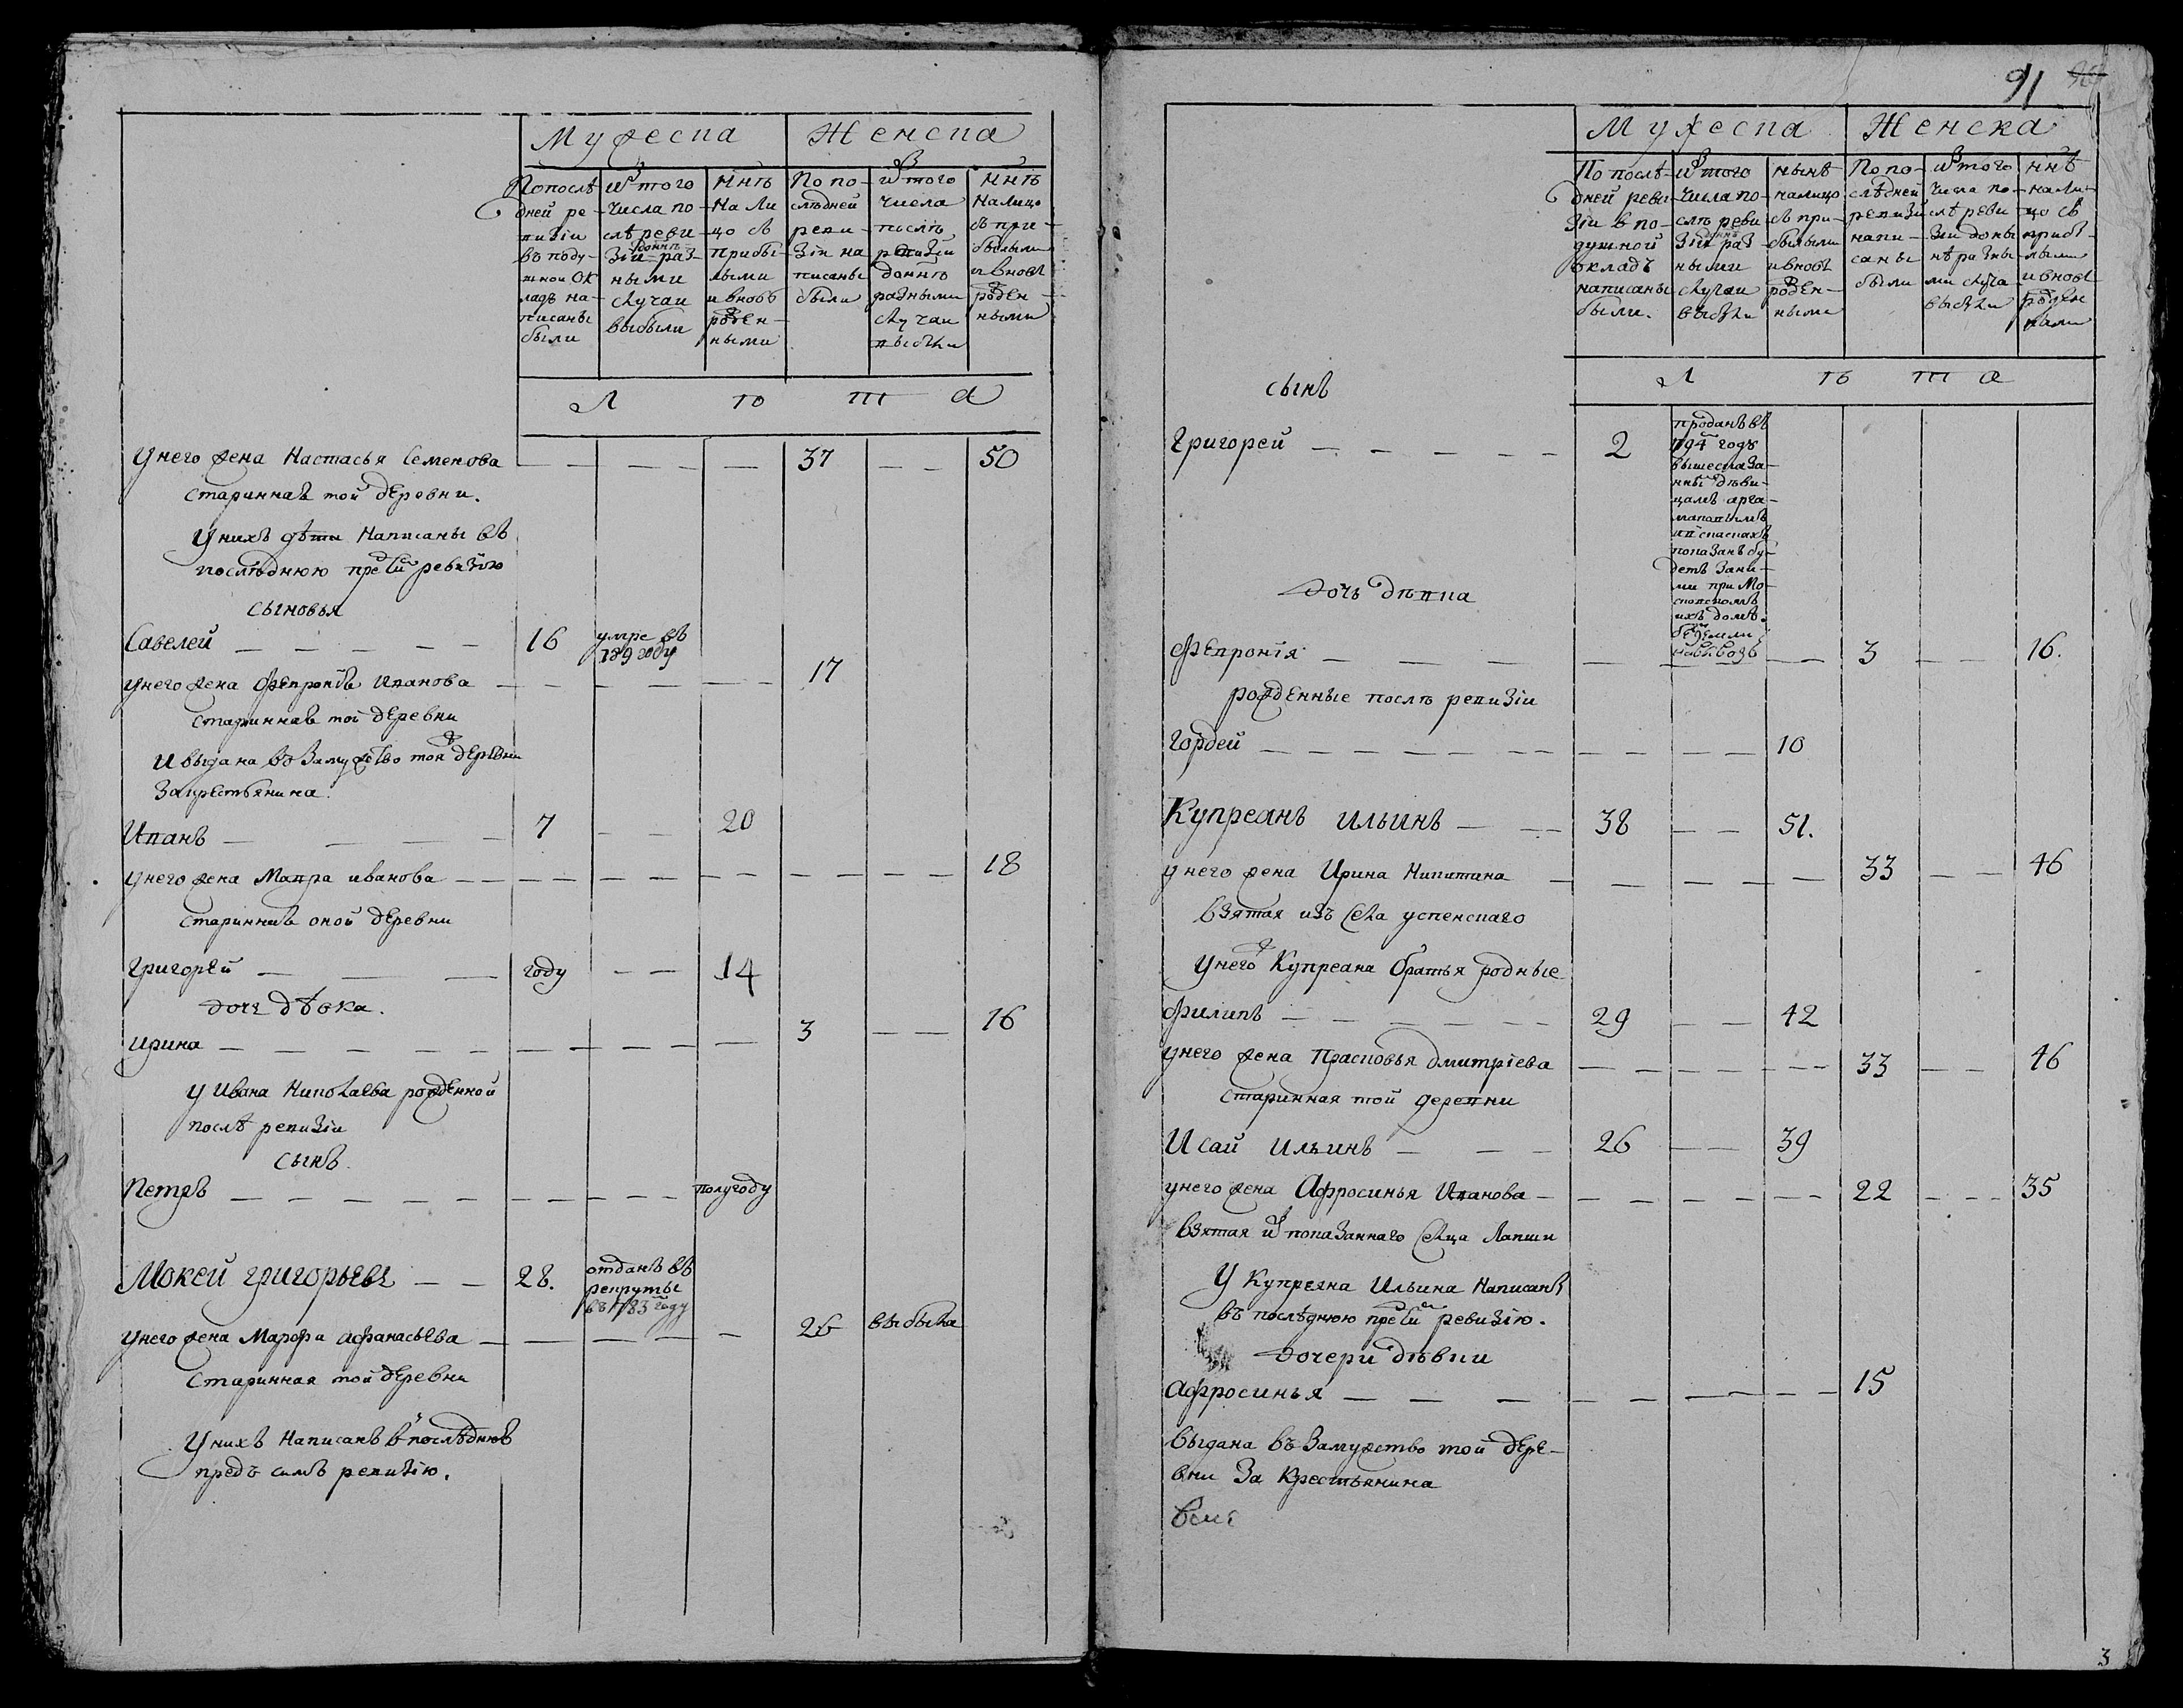 Мужеска Женска
По послѣ-
дней ре-
визіи
въ поду-
шной ок
ладъ на-
писаны
были
изъ того
числа по-
слѣ реви-
зіи донынѣ раз-
ными
случаи
выбыли
ннѣ
на ли
цо съ
прибы-
лыми
и вновь
рожден-
ными
По по-
слѣдней
реви-
зіи на
писаны
были
изъ того
числа
послѣ
ревизіи
доннѣ
разными
случаи
выбыли
ннѣ
налицо
съ при-
былыми
и вновь
рожден-
ными
Л ѣ т а
У него жена Настасья Семенова — — — — — 37 — — 50
стариннаѣ той деревни.
У нихъ дѣти написаны въ
послѣднюю предъ сим ревизію
сыновья
Савелей — — — — — 16 умре въ
789 году
у него жена Ѳевроніѣ Иванова — — — — — 17
стариннаѣ той деревни
и выдана въ замужство той ж деревни
за крестьянина.
Иванъ — — — — 7 — — 20
у него жена Мавра иванова — — — — — — — — — 18
стариннаѣ оной деревни
Григорей — — — году — — 14
дочь дѣвка.
ирина — — — — — — — — — — 3 — — 16
у Ивана Николаева рожденной
послѣ ревизіи
сынъ.
Петръ — — — — — — — — — полугоду
Мокей григорьевъ — — 28. отданъ въ
рекруты
въ 1783 году
у него жена Марфа афанасьева — — — — — — 26 выбыла
старинная той деревни
У нихъ написанъ в послѣднюѣ
предъ симъ ревизію.
91
Мужеска Женска
По послѣ-
дней реви-
зіи в по-
душной
окладъ
написаны
были.
изъ того
числа по-
слѣ реви
зіи донынѣ раз-
ными
случаи
выбыли
нынѣ
налицо
съ при-
былыми
и вновь
рожден-
ными
По по-
слѣдней
ревизіи
напи-
саны
были
изъ того
числа по-
слѣ реви
зіи доны
нѣ разны-
ми случа-
выбыли
ннѣ
нали-
цо съ
прибы-
лыми
и вновь
рожден
ными
Л ѣ т а
сынъ
Григорей — — — — — 2 проданъ въ
1794 годѣ
вышесказа-
нны дѣви-
цамъ арга-
маковымъ
показанъ бу-
детъ за ни-
ми при Мо-
сковскомъ
ихъ домѣ.
без земли
на вывозъ
дочь дѣвка
Ѳевронія — — — — — — — 3 — — 16.
рожденные послѣ ревизіи
Гордей — — — — — — — — — — 10
Купреанъ ильинъ — — 38 — — 51.
у него жена Ирина Никитина — — — — — 33 — — 46
взятая изъ села успенскаго
У него ж Купреана братья родные
Филипъ — — — — — — 29 — — 42
у него жена Прасковья дмитріева — — — — — 33 — — 46
старинная той деревни
Исай ильинъ — — — 26 — — 39
у него жена Афросинья Иванова — — — — — — 22 — — 35
взятая из показаннаго сельца Лапши
У Купреяна Ильина написанѣ
въ послѣднюю предъ сим ревизію.
дочери дѣвки
афросинья — — — — — — — — 15
выдана въ замужство той дере-
вни за крестьянина
3